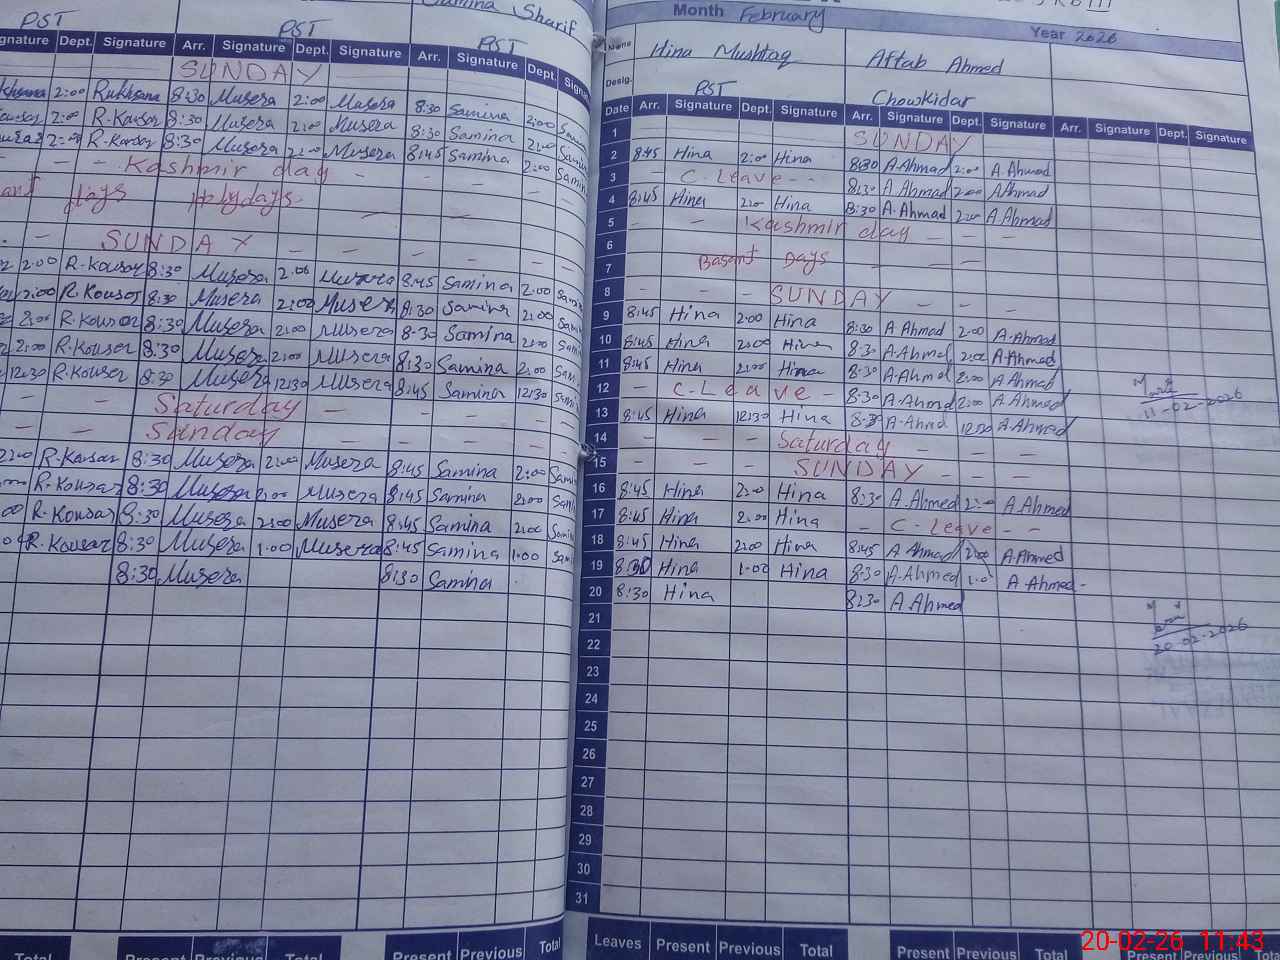 PST PST Samina Sharif PST
Signature Dept. Signature Arr. Signature Dept. Signature Arr. Signature Dept. Signature
SUNDAY
2:00 Rukhsana 8:30 Musera 2:00 Musera 8:30 Samina 2:00
2:00 R-Kousar 8:30 Musera 2:00 Musera 8:30 Samina 2:00
R-Kousar 8:30 Musera 2:00 Musera 8:45 Samina 2:00
- - Kashmir day - -
days Holydays
- SUNDAY - - -
2:00 R-Kousar 8:30 Musera 2:00 Musera 8:45 Samina 2:00
2:00 R.Kousar 8:30 Musera 2:00 Musera 8:30 Samina 2:00
2:00 R-Kousar 8:30 Musera 2:00 Musera 8:30 Samina 2:00
2:00 R.Kouser 8:30 Musera 2:00 Musera 8:30 Samina 2:00
12:30 R.Kouser 8:30 Musera 12:30 Musera 8:45 Samina 12:30
- - Saturday - - -
- - Sunday - - -
2:00 R-Kausar 8:30 Musera 2:00 Musera 8:45 Samina 2:00
R.Kousar 8:30 Musera 2:00 Musera 8:45 Samina 2:00
R.Kousar 8:30 Musera 2:00 Musera 8:45 Samina 2:00
R.Kousar 8:30 Musera 1:00 Musera 8:45 Samina 1:00
8:30 Musera 8:30 Samina
Total Present Previous Total Present Previous Total
Month February Year 2026
Name Hina Mushtaq Aftab Ahmed
Desig. PST Chowkidar
Date Arr. Signature Dept. Signature Arr. Signature Dept. Signature Arr. Signature Dept. Signature
1 SUNDAY
2 8:45 Hina 2:00 Hina 8:30 A.Ahmad 2:00 A.Ahmad
3 - C-Leave - - 8:30 A.Ahmad 2:00 AAhmad
4 8:45 Hina 2:00 Hina 8:30 A.Ahmad 2:00 A.Ahmad
5 - Kashmir day - - -
6
7 Basant Days
8 - - SUNDAY - -
9 8:45 Hina 2:00 Hina 8:30 A Ahmad 2:00 A-Ahmad
10 8:45 Hina 2:00 Hina 8:30 A-Ahmad 2:00 A-Ahmad
11 8:45 Hina 2:00 Hina 8:30 A-Ahmad 2:00 A.Ahmad
12 - C-Leave - 8:30 A-Ahmad 2:00 A.Ahmed
13 8:45 Hina 12:30 Hina 8:30 A-Ahmd 12:30 A-Ahmad
11-02-2026
14 - - Saturday - -
15 - - SUNDAY - - -
16 8:45 Hina 2:00 Hina 8:30 A.Ahmed 2:00 A.Ahmed
17 8:45 Hina 2:00 Hina - C-Leave - -
18 8:45 Hina 2:00 Hina 8:45 A Ahmad 2:00 A.Ahmed
19 8:30 Hina 1:00 Hina 8:30 A.Ahmed 1:00 A.Ahmed-
20 8:30 Hina 8:30 A.Ahmed
20-02-2026
21
22
23
24
25
26
27
28
29
30
31
Leaves Present Previous Total Present Previous Total Present Previous Total
20-02-26 11:43